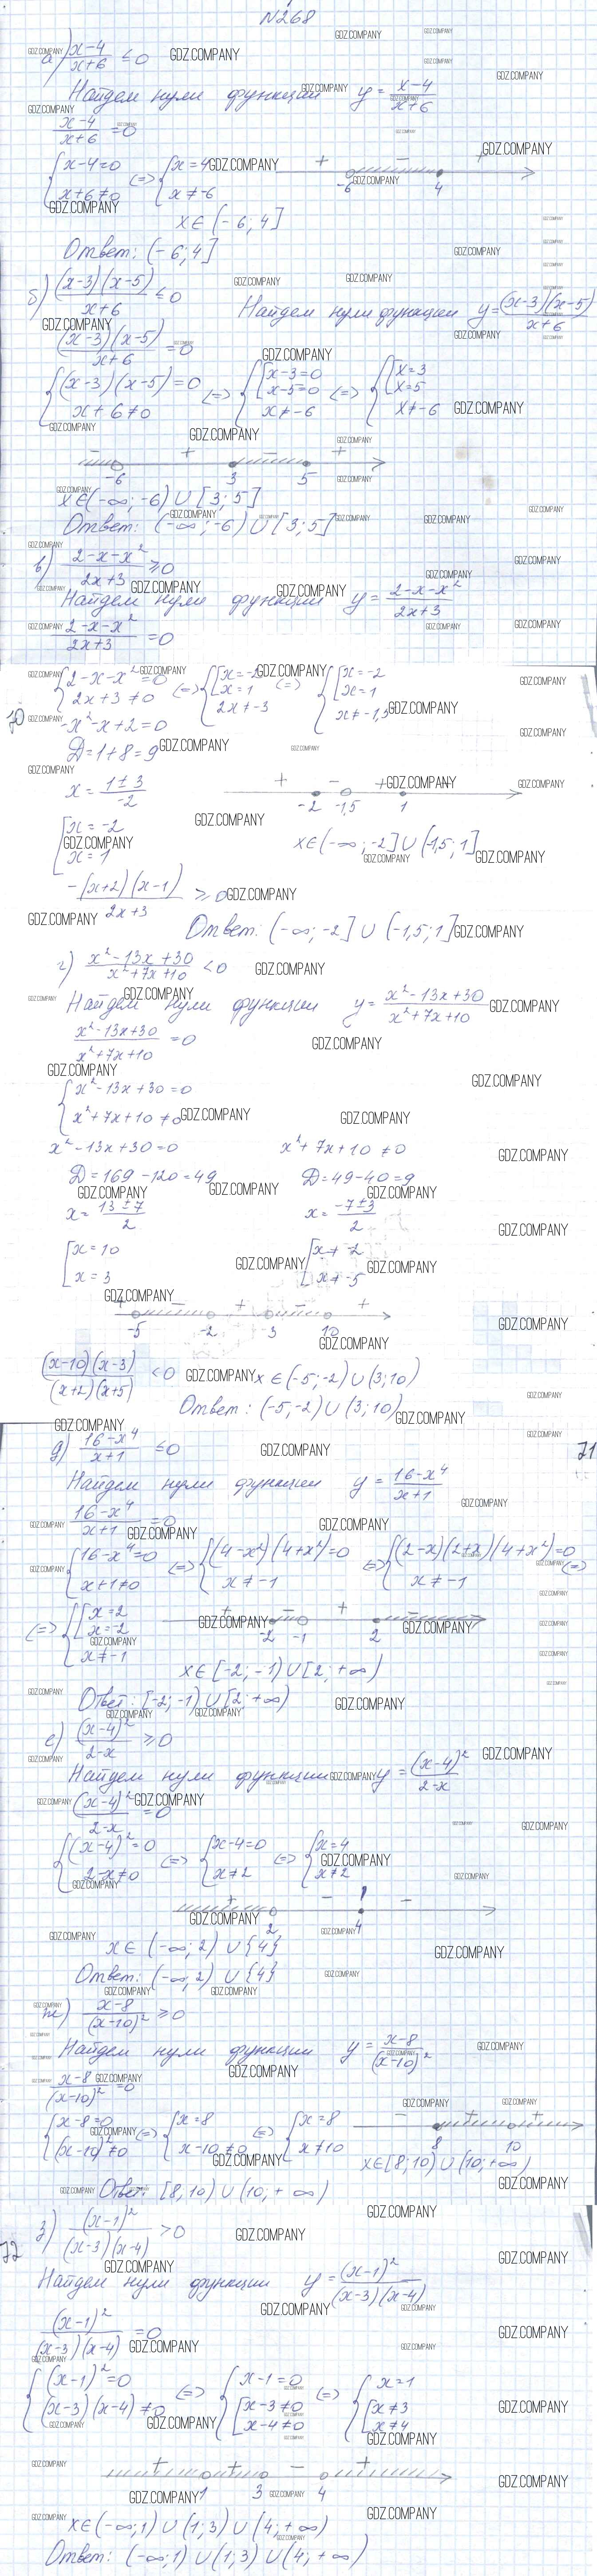 N268
а) (x-4)/(x+6) ≤ 0
Найдем нули функции y = (x-4)/(x+6)
(x-4)/(x+6) = 0
{x-4=0 {x=4
{x+6≠0 <=> {x≠-6
+ - +
-6 4
x∈(-6;4]
Ответ: (-6;4]
б) (x-3)(x-5)/(x+6) ≤ 0
Найдем нули функции y = (x-3)(x-5)/(x+6)
(x-3)(x-5)/(x+6) = 0
{(x-3)(x-5)=0 <=> {[x-3=0 [x-5=0 <=> {[x=3 [x=5
{x+6≠0 {x≠-6 {x≠-6
- + - +
-6 3 5
x∈(-∞;-6)∪[3;5]
Ответ: (-∞;-6)∪[3;5]
в) (2-x-x²)/(2x+3) ≥ 0
Найдем нули функции y = (2-x-x²)/(2x+3)
(2-x-x²)/(2x+3) = 0
70
{2-x-x²=0 <=> {[x=-2 [x=1 <=> {[x=-2 [x=1
{2x+3≠0 {2x≠-3 {x≠-1,5
-x²-x+2=0
Д=1+8=9
x = (1±3)/(-2)
+ - + -
-2 -1,5 1
[x=-2
[x=1
x∈(-∞;-2]∪(-1,5;1]
-(x+2)(x-1)/(2x+3) ≥ 0
Ответ: (-∞;-2]∪(-1,5;1]
г) (x²-13x+30)/(x²+7x+10) < 0
Найдем нули функции y = (x²-13x+30)/(x²+7x+10)
(x²-13x+30)/(x²+7x+10) = 0
{x²-13x+30=0
{x²+7x+10≠0
x²-13x+30=0 x²+7x+10≠0
Д=169-120=49 Д=49-40=9
x=(13±7)/2 x=(-7±3)/2
[x=10 [x≠-2
[x=3 [x≠-5
+ - + - +
-5 -2 3 10
(x-10)(x-3)/(x+2)(x+5) < 0 x∈(-5;-2)∪(3;10)
Ответ: (-5;-2)∪(3;10)
71
д) (16-x⁴)/(x+1) ≤ 0
Найдем нули функции y = (16-x⁴)/(x+1)
(16-x⁴)/(x+1) = 0
{16-x⁴=0 <=> {(4-x²)(4+x²)=0 <=> {(2-x)(2+x)(4+x²)=0 <=>
{x+1≠0 {x≠-1 {x≠-1
<=> {[x=2 [x=-2
{x≠-1
+ - + -
-2 -1 2
x∈[-2;-1)∪[2;+∞)
Ответ: [-2;-1)∪[2;+∞)
е) (x-4)²/(2-x) ≥ 0
Найдем нули функции y = (x-4)²/(2-x)
(x-4)²/(2-x) = 0
{(x-4)²=0 <=> {x-4=0 <=> {x=4
{2-x≠0 {x≠2 {x≠2
+ - -
2 4
x∈(-∞;2)∪{4}
Ответ: (-∞;2)∪{4}
ж) (x-8)/(x-10)² ≥ 0
Найдем нули функции y = (x-8)/(x-10)²
(x-8)/(x-10)² = 0
{x-8=0 <=> {x=8 <=> {x=8
{(x-10)²≠0 {x-10≠0 {x≠10
- + +
8 10
x∈[8;10)∪(10;+∞)
Ответ: [8,10)∪(10;+∞)
72
з) (x-1)²/(x-3)(x-4) > 0
Найдем нули функции y = (x-1)²/(x-3)(x-4)
(x-1)²/(x-3)(x-4) = 0
{(x-1)²=0 <=> {x-1=0 <=> {x=1
{(x-3)(x-4)≠0 {[x-3≠0 [x-4≠0 {[x≠3 [x≠4
+ + - +
1 3 4
x∈(-∞;1)∪(1;3)∪(4;+∞)
Ответ: (-∞;1)∪(1;3)∪(4;+∞)
GDZ.COMPANY